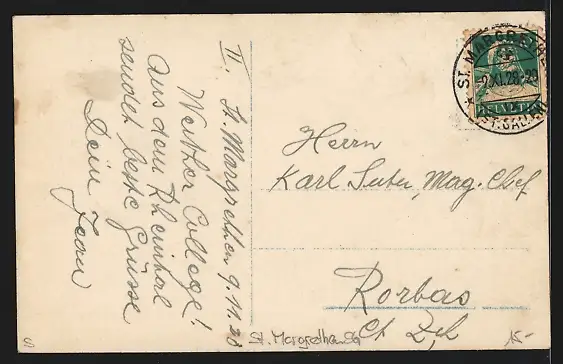 II. St. Margrethen 9.11.28
Werther College!
Aus dem Rheintal
sendet beste Grüsse
Dein Jean
ST. MARGRETHEN
-9.XI.28-20
(ST. GALLEN)
HELVETIA
Herrn
Karl Suter, Mag. Chef
Rorbas
Ct Zch
St. Margrethen SG
15-